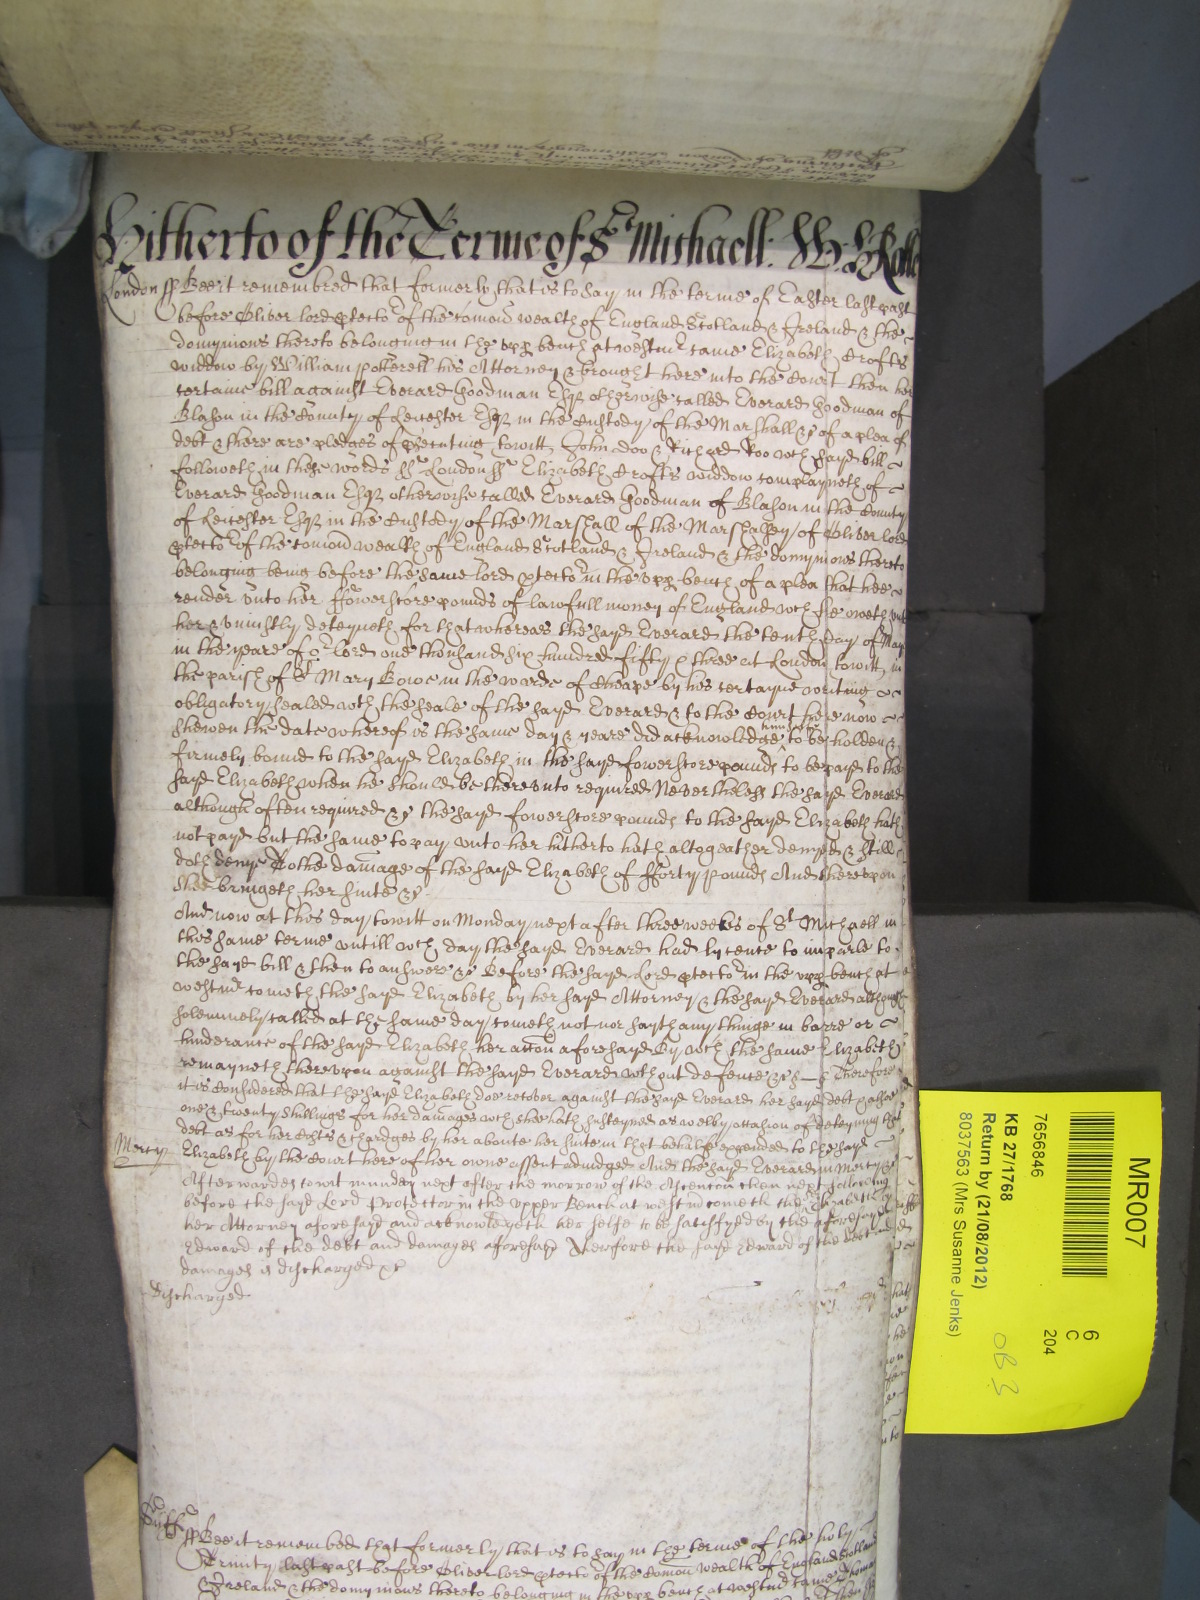 Hitherto of the Terme of St Michaell: W: Rolle
London ss Bee it remembred that formerly that is to say in the terme of Easter last past
before Oliver lord ptector of the comon wealth of England Scotland & Ireland & the
domynions thereto belonging in the upp bench at westmr came Elizabeth Crofts
widdow by William Pickerell his Attorney & brought here into the Court then her
certaine bill against Everard Goodman Esqr otherwise called Everard Goodman of
Blason in the County of Leicester Esqr in the Custody of the Marshall &c of a plea of
debt & there are pledges of psecuting towitt John Doo & Richard Roo wch sayd bill
followeth in these words ss London ss Elizabeth Crofts widdow complayneth of
Everard Goodman Esqr otherwise called Everard Goodman of Blason in the County
of Leicester Esqr in the Custody of the Marshall of the Marshalsey of Oliver lord
ptector of the comon wealth of England Scotland & Ireland & the domynions thereto
belonging being before the same lord ptector in the upp bench of a plea that hee
render unto her ffowerscore pounds of lawfull money of England wch he oweth unto
her & uniustly deteyneth for that whereas the sayd Everard the tenth day of May
in the yeare of or lord one thousand six hundred fifty & three at London towitt in
the parish of St Mary Bowe in the warde of Cheape by his certayne writing
obligatory sealed wth the seale of the sayd Everard & to the Court here now
shewen the date whereof is the same day & yeare did acknowledge himselfe to be holden &
firmely bound to the sayd Elizabeth in the sayd fowerscore pounds to be payd to the
sayd Elizabeth when he should be thereunto required Nevertheless the sayd Everard
although often required &c the sayd fowerscore pounds to the sayd Elizabeth hath
not payd but the same to pay unto her hitherto hath altogeather denyed & still
doth deny To the damage of the sayd Elizabeth of fforty pounds And thereupon
shee bringeth her suite &c
And now at this day towitt on Monday next after three weekes of St Michaell in
this same terme untill wch day the sayd Everard had lycence to imparle to
the sayd bill & then to answere &c Before the sayd Lord ptector in the upp bench at
westmr cometh the sayd Elizabeth by her sayd Attorney & the sayd Everard although
solemnely called at the same day cometh not nor sayth any thinge in barre or
hinderance of the sayd Elizabeth her accon aforesayd By wch the same Elizabeth
remayneth thereupon against the sayd Everard wthout defence &c Therefore
it is Considered that the sayd Elizabeth doe recover against the sayd Everard her sayd debt &
one & twenty shillings for her damages wch she hath susteyned as well by occasion of deteyning that
debt as for her costs & chardges by her aboute her suite in that behalfe expended to the sayd
Elizabeth by the Court here of her owne assent adiudged And the sayd Everard in mercy &c
Mercy
Afterwardes towit munday next after the morrow of the Ascencon then next following
before the sayd Lord Protector in the upper Bench at westmr cometh the Elizabeth by
her Attorney aforesayd and acknowledgeth her selfe to be satisfyed by the aforesayd
Edward of the debt and damages aforesayd Therefore the sayd Edward of the debt and
damages is discharged &c
Discharged
Suff ss Bee it remembred that formerly that is to say in the terme of the holy
Trinity last past before Oliver lord ptector of the Comon wealth of England Scotland
& Ireland & the domynions thereto belonging in the upp bench at westmr came Thomas
MR007
7656846
6
C
204
KB 27/1768
Return by (21/08/2012)
8037563 (Mrs Susanne Jenks)